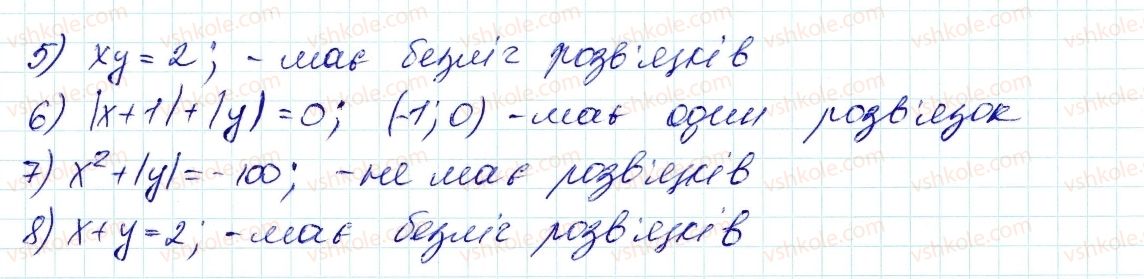 5) xy = 2; - має безліч розв'язків
6) |x+1|+|y| = 0; (-1; 0) - має один розв'язок
7) x²+|y| = -100; - не має розв'язків
8) x+y = 2; - має безліч розв'язків